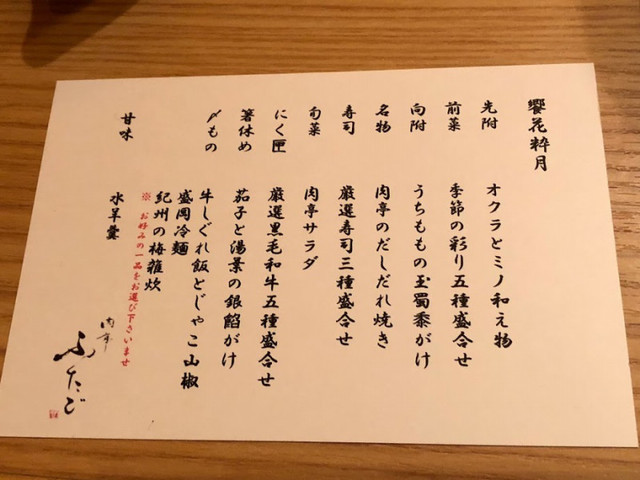 饗花粋月
先附 オクラとミノ和え物
前菜 季節の彩り五種盛合せ
向附 うちももの玉蜀黍がけ
名物 肉亭のだしだれ焼き
寿司 厳選寿司三種盛合せ
旬菜 肉亭サラダ
にく匣 厳選黒毛和牛五種盛合せ
箸休め 茄子と湯葉の銀餡がけ
〆もの 牛しぐれ飯とじゃこ山椒
盛岡冷麺
紀州の梅雑炊
※ お好みの一品をお選び下さいませ
甘味 水羊羹
肉亭
ふたご